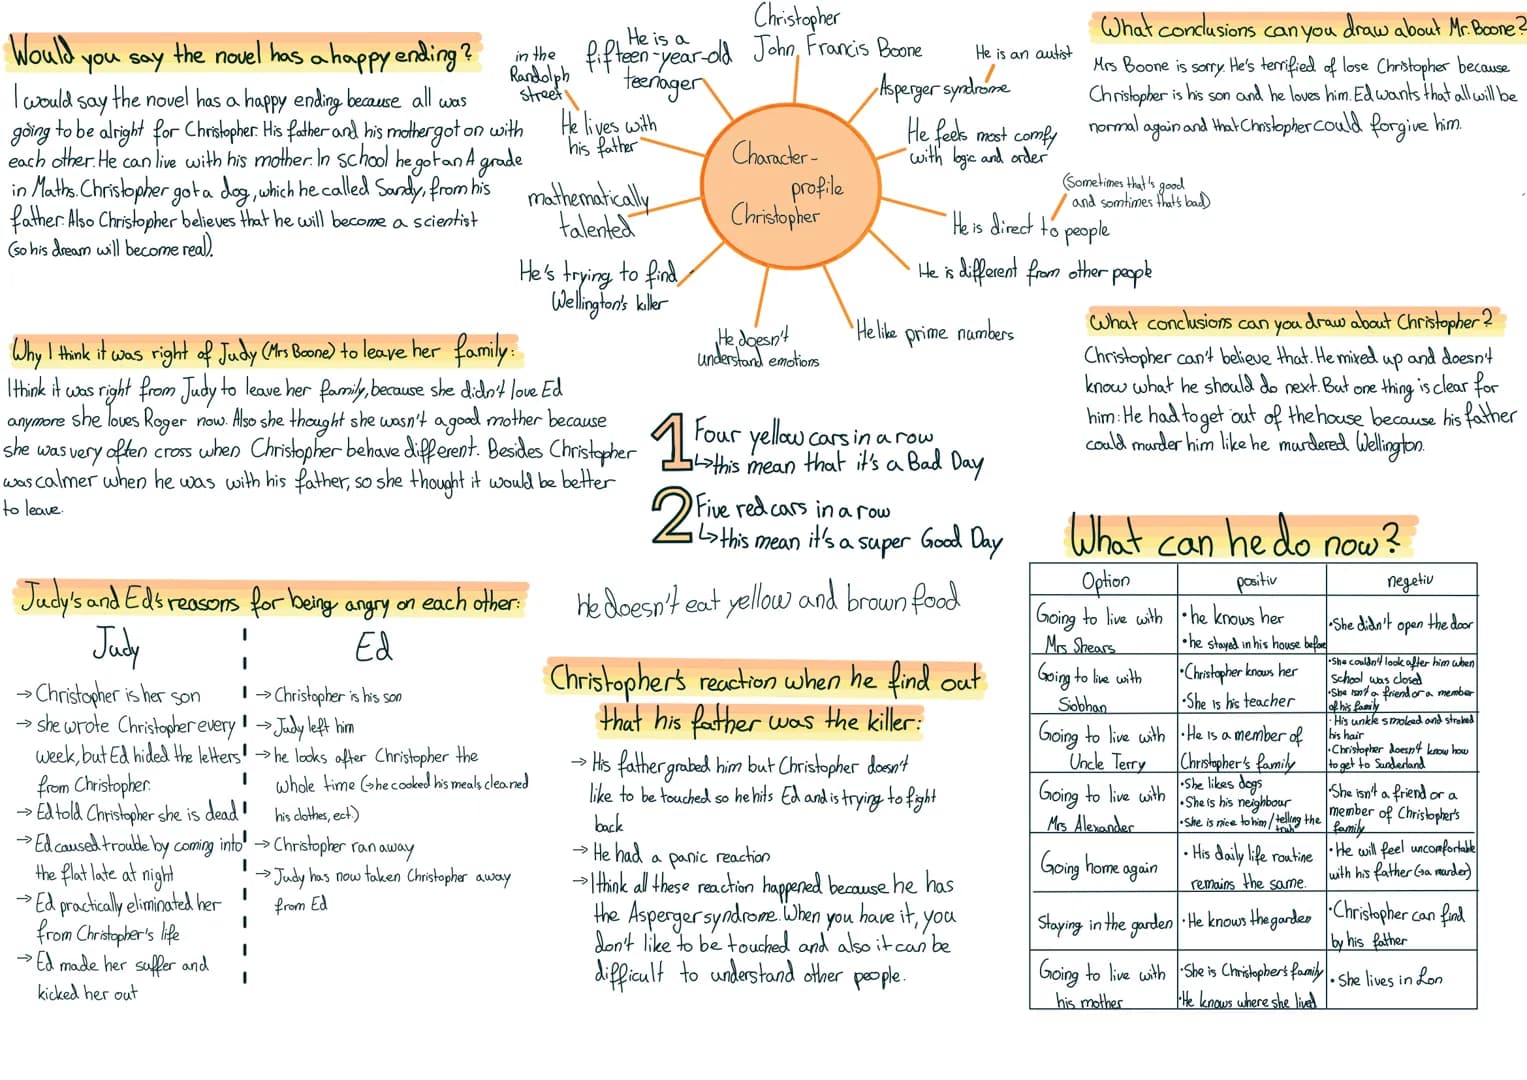 Would you say the novel has a happy ending?
I would say the novel has a happy ending because all was
going to be alright for Christopher. His father and his mother got on with
each other. He can live with his mother. In school he got an A grade
in Maths. Christopher got a dog, which he called Sandy, from his
father. Also Christopher believes that he will become a scientist
(so his dream will become real).
Why I think it was right of Judy (Mrs Boone) to leave her family:
I think it was right from Judy to leave her family, because she didn't love Ed
anymore she loves Roger now. Also she thought she wasn't a good mother because
she was very often cross when Christopher behave different. Besides Christopher
was calmer when he was with his father, so she thought it would be better
to leave.
Judy's and Ed's reasons for being angry on each other:
Judy
→ Christopher is her son
→ she wrote Christopher every
week, but Ed hided the letters
from Christopher.
→ Ed told Christopher she is dead
→ Ed caused trouble by coming into
the flat late at night
→ Ed practically eliminated her
from Christopher's life
→ Ed made her suffer and
kicked her out
Ed
→ Christopher is his son
→ Judy left him
→ he looks after Christopher the
whole time (→ he cooked his meals cleaned
his clothes, ect.)
→ Christopher ran away
→ Judy has now taken Christopher away
from Ed
Character-
profile
Christopher
Christopher
John Francis Boone
He is an autist
Asperger syndrome
He feels most comfy
with logic and order
(Sometimes that's good
and somtimes that's bad)
He is direct to people
He is different from other people
He like prime numbers
He doesn't
understand emotions
He's trying to find
Wellington's killer
mathematically
talented
He lives with
his father
in the
Randolph
street
He is a
fifteen-year-old
teenager
1 Four yellow cars in a row
↳ this mean that it's a Bad Day
2 Five red cars in a row
↳ this mean it's a super Good Day
He doesn't eat yellow and brown food
Christopher's reaction when he find out
that his father was the killer:
→ His father grabed him but Christopher doesn't
like to be touched so he hits Ed and is trying to fight
back
→ He had a panic reaction
→ I think all these reaction happened because he has
the Asperger syndrome. When you have it, you
don't like to be touched and also it can be
difficult to understand other people.
What conclusions can you draw about Mr. Boone?
Mrs Boone is sorry. He's terrified of lose Christopher because
Christopher is his son and he loves him. Ed wants that all will be
normal again and that Christopher could forgive him.
What conclusions can you draw about Christopher?
Christopher can't believe that. He mixed up and doesn't
know what he should do next. But one thing is clear for
him: He had to get out of the house because his father
could murder him like he murdered Wellington.
What can he do now?
Option positiv negetiv
Going to live with
Mrs Shears
• he knows her
• he stayed in his house before
• She didn't open the door
Going to live with
Siobhan
• Christopher knows her
• She is his teacher
• She couldn't look after him when
School was closed
• She isn't a friend or a member
of his family
Going to live with
Uncle Terry
• He is a member of
Christopher's family
• His unkle smoked and stroked
his hair
• Christopher doesn't know how
to get to Sunderland
Going to live with
Mrs Alexander
• She likes dogs
• She is his neighbour
• She is nice to him / telling the
truh
• She isn't a friend or a
member of Christopher's
family
Going home again
• His daily life routine
remains the same.
• He will feel uncomfortable
with his father (→ a murder)
Staying in the garden
• He knows the garden
• Christopher can find
by his father
Going to live with
his mother
• She is Christopher's family
• He knows where she lived
• She lives in Lon